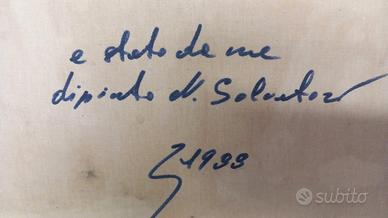 e stato da me
dipinto N. Salvator
1999
subito